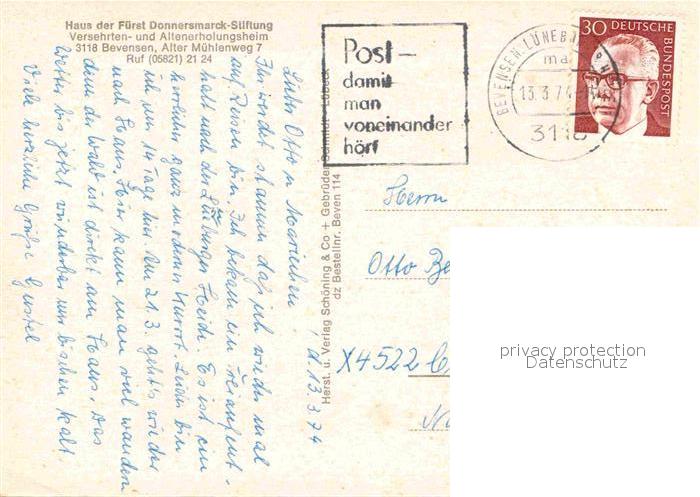 Haus der Fürst Donnersmarck-Stiftung
Versehrten- und Altenerholungsheim
3118 Bevensen, Alter Mühlenweg 7
Ruf (05821) 21 24
d. 13.3.74
Lieber Otto u Mariechen!
Ihr werdet staunen daß ich wieder mal
auf Reisen bin. Ich bekam ein Freiaufent-
halt nach der Lüneburger Heide. Es ist ein
herrlicher ganz moderner Kurort. Leider bin
ich nur 14 Tage hier. Am 21.3. geht's wieder
nach Haus. Hier kann man viel wandern
denn der Wald ist direkt am Haus. Das
Wetter bis jetzt wunderbar nur bischen kalt.
Viele herzliche Grüße Gustel
Herst. u. Verlag Schöning & Co + Gebrüder Schmidt - Lübeck
dz Bestellnr. Beven 114
Post -
damit
man
voneinander
hört
BEVENSEN, LÜNEB
13.3.74
3118
30 DEUTSCHE
BUNDESPOST
Herrn
Otto Be
X4522
privacy protection
Datenschutz